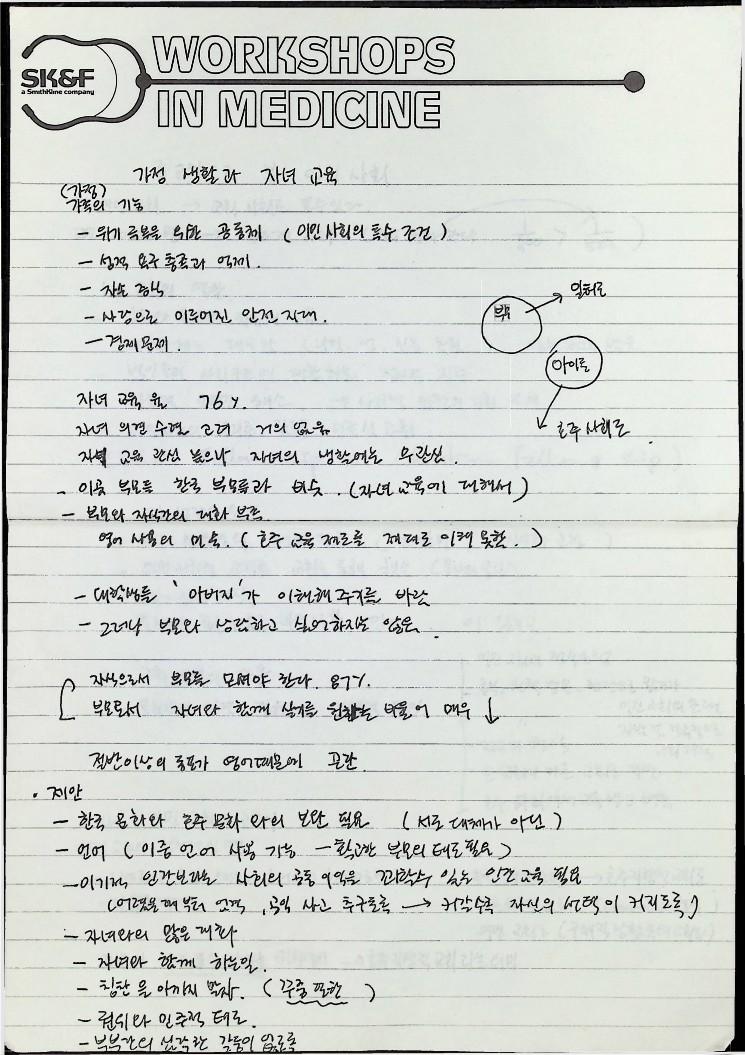 SK&F
a SmithKline company
WORKSHOPS
IN MEDICINE
가정 생활과 자녀 교육
(가정)
가족의 기능
- 위기 극복을 위한 공동체 (이민사회의 특수 조건)
- 성적 욕구 충족과 억제.
- 자손 번식
- 사랑으로 이루어진 안전지대.
- 경제문제.
부부
일터로
아이들
호주 사회로
자녀 교육 율 76%
자녀 의견 수렴 고려 거의 없음
자녀 교육 관심 높으나 자녀의 생활에는 무관심.
- 이곳 부모들 한국 부모들과 비슷. (자녀교육에 대해서)
- 부모와 자식간의 대화 부족
영어 사용의 미숙. (호주 교육 제도를 제대로 이해 못함.)
- 대학생들 '아버지'가 이해해주기를 바람
- 그러나 부모와 상담하고 싶어하지는 않음.
자식으로서 부모를 모셔야 한다. 87%.
부모로서 자녀와 함께 살기를 원하는 비율이 매우 ↓
절반이상의 동포가 영어때문에 곤란.
• 제안
- 한국 문화와 호주 문화 와의 보완 필요 (서로 대체가 아닌)
- 언어 (이중 언어 사용 가능 - 확고한 부모의 태도 필요)
- 이기적 인간보다는 사회의 공동 이익을 꾀할수 있는 인간 교육 필요
(어렸을때 부터 연격, 공익 사고 추구토록 → 커갈수록 자신의 선택이 커지도록)
- 자녀와의 많은 대화
- 자녀와 함께 하는일.
- 칭찬을 아끼지 말자. (꾸중 또한)
- 권위와 민주적 태도.
- 부부간의 심각한 갈등이 없도록